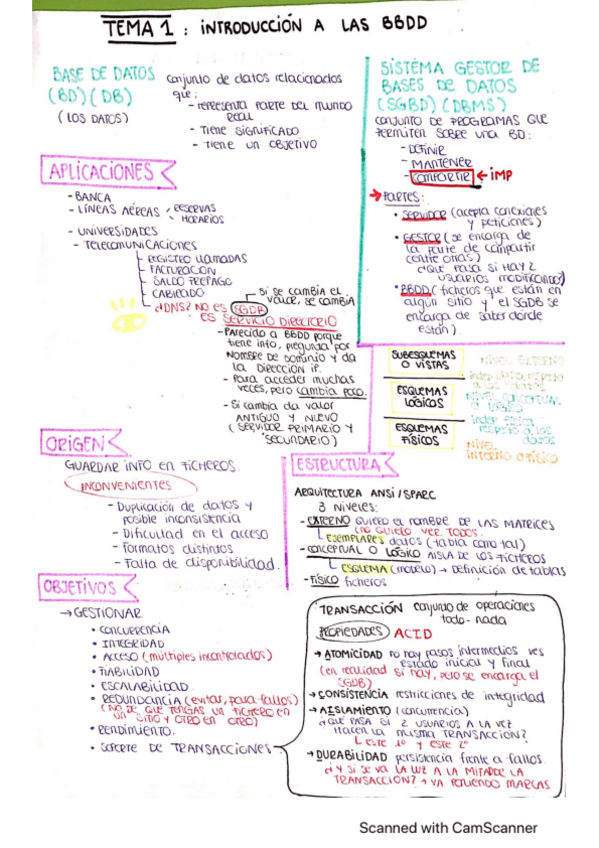 TEMA 1 : INTRODUCCIÓN A LAS BBDD
BASE DE DATOS
(BD) (DB)
(LOS DATOS)
conjunto de datos relacionados
que:
- representa PARTE DEL MUNDO
REAL
- TIENE SIGNIFICADO
- TIENE UN OBJETIVO
SISTEMA GESTOR DE
BASES DE DATOS
(SGBD) (DBMS)
CONJUNTO DE PROGRAMAS QUE
PERMITEN SOBRE UNA BD:
- DEFINIR
- MANTENER
- COMPARTIR ← IMP
→ PARTES:
• SERVIDOR (acepta conexiones
y peticiones)
• GESTOR (se encarga de
la parte de compartir
entre otras)
¿QUE PASA SI HAY 2
USUARIOS MODIFICANDO?
• BBDD (ficheros que están en
algún sitio y el SGDB se
encarga de saber dónde
están)
APLICACIONES
- BANCA
- LÍNEAS AÉREAS
RESERVAS
HORARIOS
- UNIVERSIDADES
- TELECOMUNICACIONES
REGISTRO LLAMADAS
FACTURACIÓN
SALDO PREPAGO
¿DNS? NO ES SGDB
si se cambia el
valor, se cambia
ES SERVICIO DIRECTORIO
- PARECIDO A BBDD porque
tiene info, pregunta por
NOMBRE DE DOMINIO y da
la DIRECCIÓN IP.
- Para acceder muchas
veces, pero cambia poco.
- Si cambia da valor
ANTIGUO Y NUEVO
(SERVIDOR PRIMARIO Y
SECUNDARIO)
SUBESQUEMAS
O VISTAS
ESQUEMAS
LÓGICOS
ESQUEMAS
FÍSICOS
NIVEL EXTERNO
indep lógica respecto
a los datos
NIVEL CONCEPTUAL
O LÓGICO
indep física
respecto a los
datos
NIVEL
INTERNO O FÍSICO
ORIGEN
GUARDAR INFO EN FICHEROS.
INCONVENIENTES
- Duplicación de datos y
posible inconsistencia
- Dificultad en el acceso
- Formatos distintos
- Falta de disponibilidad.
ESTRUCTURA
ARQUITECTURA ANSI/SPARC
3 niveles:
- EXTERNO QUIERO EL NOMBRE DE LAS MATRICES
(NO QUIERO VER TODO).
EJEMPLARES datos (tabla como tal)
- CONCEPTUAL O LÓGICO AISLA DE LOS FICHEROS
ESQUEMA (MODELO) → Definición de tablas
- FÍSICO ficheros
OBJETIVOS
→ GESTIONAR
• CONCURRENCIA
• INTEGRIDAD
• ACCESO (múltiples incontrolados)
• FIABILIDAD
• ESCALABILIDAD.
• REDUNDANCIA (evitar, para fallos)
(NO DE QUE TENGAS UN FICHERO EN
UN SITIO Y OTRO EN OTRO)
• RENDIMIENTO.
• SOPORTE DE TRANSACCIONES
TRANSACCIÓN conjunto de operaciones
todo-nada
PROPIEDADES ACID
→ ATOMICIDAD no hay pasos intermedios ves
estado inicial y final
(en realidad si hay, pero se encarga el
SGDB)
→ CONSISTENCIA restricciones de integridad
→ AISLAMIENTO (concurrencia)
¿QUÉ PASA SI 2 USUARIOS A LA VEZ
HACEN LA MISMA TRANSACCIÓN?
ESTE 1º y este 2º
→ DURABILIDAD persistencia frente a fallos.
¿Y SI SE VA LA LUZ A LA MITAD DE LA
TRANSACCIÓN? → VA PONIENDO MARCAS
Scanned with CamScanner